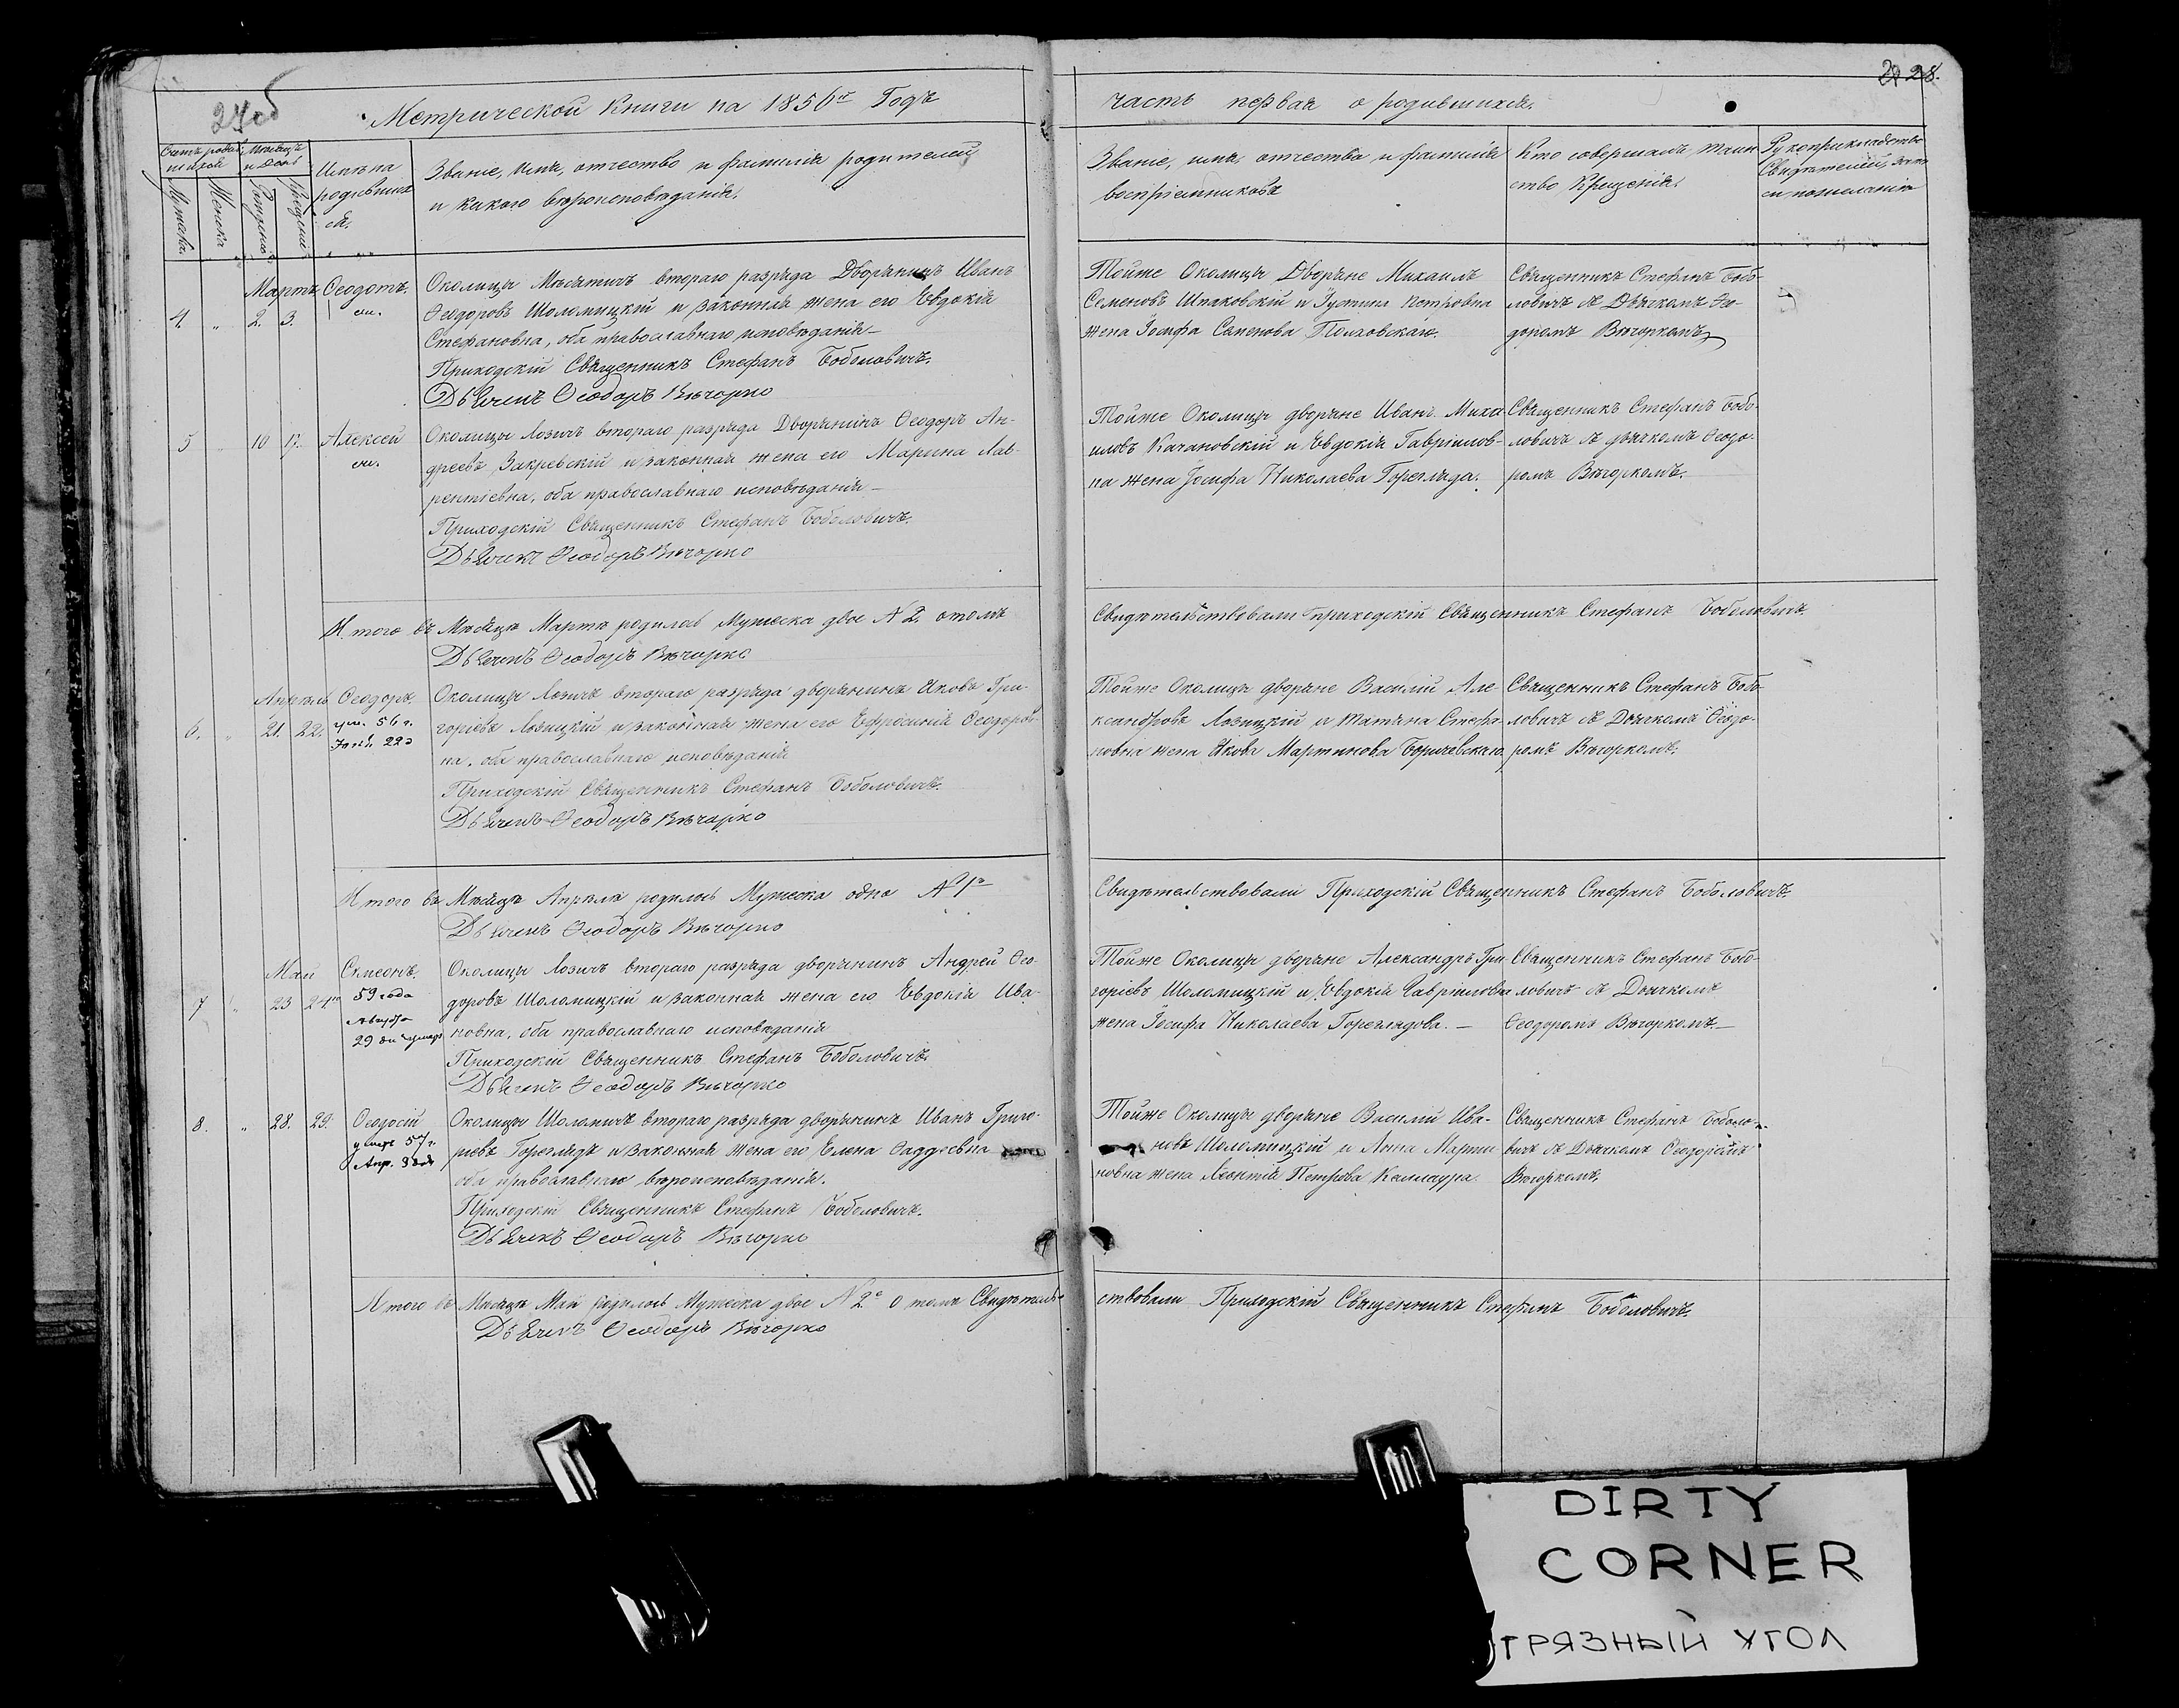 27об
28.
Метрической Книги на 1856й Годъ
часть первая о родившихся.
Счетъ родив-
шихся
Мѣсяцъ
и День
Мужска.
Женска
Рожденія
Крещенія
Имена
родивших
ся.
Званіе, имя, отчество и фамилія родителей
и какого вѣроисповѣданія.
Званіе, имя, отчество и фамилія
воспріемниковъ
Кто совершалъ таин
ство Крещенія.
Рукоприкладство
Свидѣтелей,
по желанію
Мартъ
4. " 2. 3.
Ѳеодотъ.
Околицы втораго разряда Дворянинъ Иванъ
Ѳеодоровъ Шоломицкій и законная жена его Евдокія
Стефановна, оба православнаго исповѣданія
Приходскій Священникъ Стефанъ Боболовичъ.
Дьячекъ Ѳеодоръ Вѣчорко
Тойже Околицы Дворяне Михаилъ
Семеновъ Шпаковскій и Іустина Петровна
жена Іосифа
Священникъ Стефанъ Бобо-
ловичъ съ Дьячкомъ Ѳео-
доромъ Вѣчоркомъ
5 " 10 17.
Алексей
Околицы Лозичъ втораго разряда Дворянинъ Ѳеодоръ Ан-
дреевъ Закревскій и законная жена его Марина Лав-
рентіевна, оба православнаго исповѣданія
Приходскій Священникъ Стефанъ Боболовичъ.
Дьячекъ Ѳеодоръ Вѣчорко
Тойже Околицы дворяне Иванъ Миха
иловъ Качановскій и Евдокія Гавріилов-
на жена Іосифа Николаева Горегляда.
Священникъ Стефанъ Бобо-
ловичъ съ дьячкомъ Ѳеодо-
ромъ Вѣчоркомъ.
Итого въ Мѣсяцѣ Мартѣ родилось Мужеска двое № 2. о томъ
Дьячекъ Ѳеодоръ Вѣчорко
Свидѣтельствовали приходскій Священникъ Стефанъ Боболовичъ.
Апрѣль
6. " 21. 22.
Ѳеодоръ.
ум. 56 г.
22
Околицы Лозичъ втораго разряда дворянинъ Яковъ Гри-
горіевъ Лозицкій и законная жена его Ефросинія Ѳеодоров-
на, оба православнаго исповѣданія
Приходскій Священникъ Стефанъ Боболовичъ.
Дьячекъ Ѳеодоръ Вѣчорко
Тойже Околицы дворяне Василій Але-
ксандровъ Лозицкій и Татіяна Стефа-
новна жена Якова Мартинова
Священникъ Стефанъ Бобо-
ловичъ съ Дьячкомъ Ѳеодо-
ромъ Вѣчоркомъ.
Итого въ Мѣсяцѣ Апрѣлѣ родилось Мужеска одно № 1
Дьячекъ Ѳеодоръ Вѣчорко
Свидѣтельствовали Приходскій Священникъ Стефанъ Боболовичъ.
Май
7 " 23 24
Симеонъ.
59 года
Августа
29 дн умеръ
Околицы Лозичъ втораго разряда дворянинъ Андрей Ѳео-
доровъ Шоломицкій и законная жена его Евдокія Ива-
новна, оба православнаго исповѣданія
Приходскій Священникъ Стефанъ Боболовичъ.
Дьячекъ Ѳеодоръ Вѣчорко
Тойже Околицы дворяне Александръ Гри
горіевъ Шоломицкій и Евдокія Гавріиловна
жена Іосифа Николаева Гореглядова.
Священникъ Стефанъ Бобо-
ловичъ съ Дьячкомъ
Ѳеодоромъ Вѣчоркомъ.
8. " 28. 29.
Ѳеодосій
умеръ 57 г.
Апр. 3
Околицы Шоломичъ втораго разряда дворянинъ Иванъ Григо-
ріевъ Гореглядъ и законная жена его Елена Ѳаддеевна
оба православнаго вѣроисповѣданія.
Приходскій Священникъ Стефанъ Боболовичъ.
Дьячекъ Ѳеодоръ Вѣчорко
Тойже Околицы дворяне Василій Ива-
новъ Шоломицкій и Анна Марти
новна жена Леонтія Петрова
Священникъ Стефанъ Боболо-
вичъ съ Дьячкомъ Ѳеодоромъ
Вѣчоркомъ.
Итого въ Мѣсяцѣ Маѣ родилось Мужеска двое № 2 о томъ Свидѣтель-
Дьячекъ Ѳеодоръ Вѣчорко
ствовали Приходскій Священникъ Стефанъ Боболовичъ.
DIRTY
CORNER
ГРЯЗНЫЙ УГОЛ